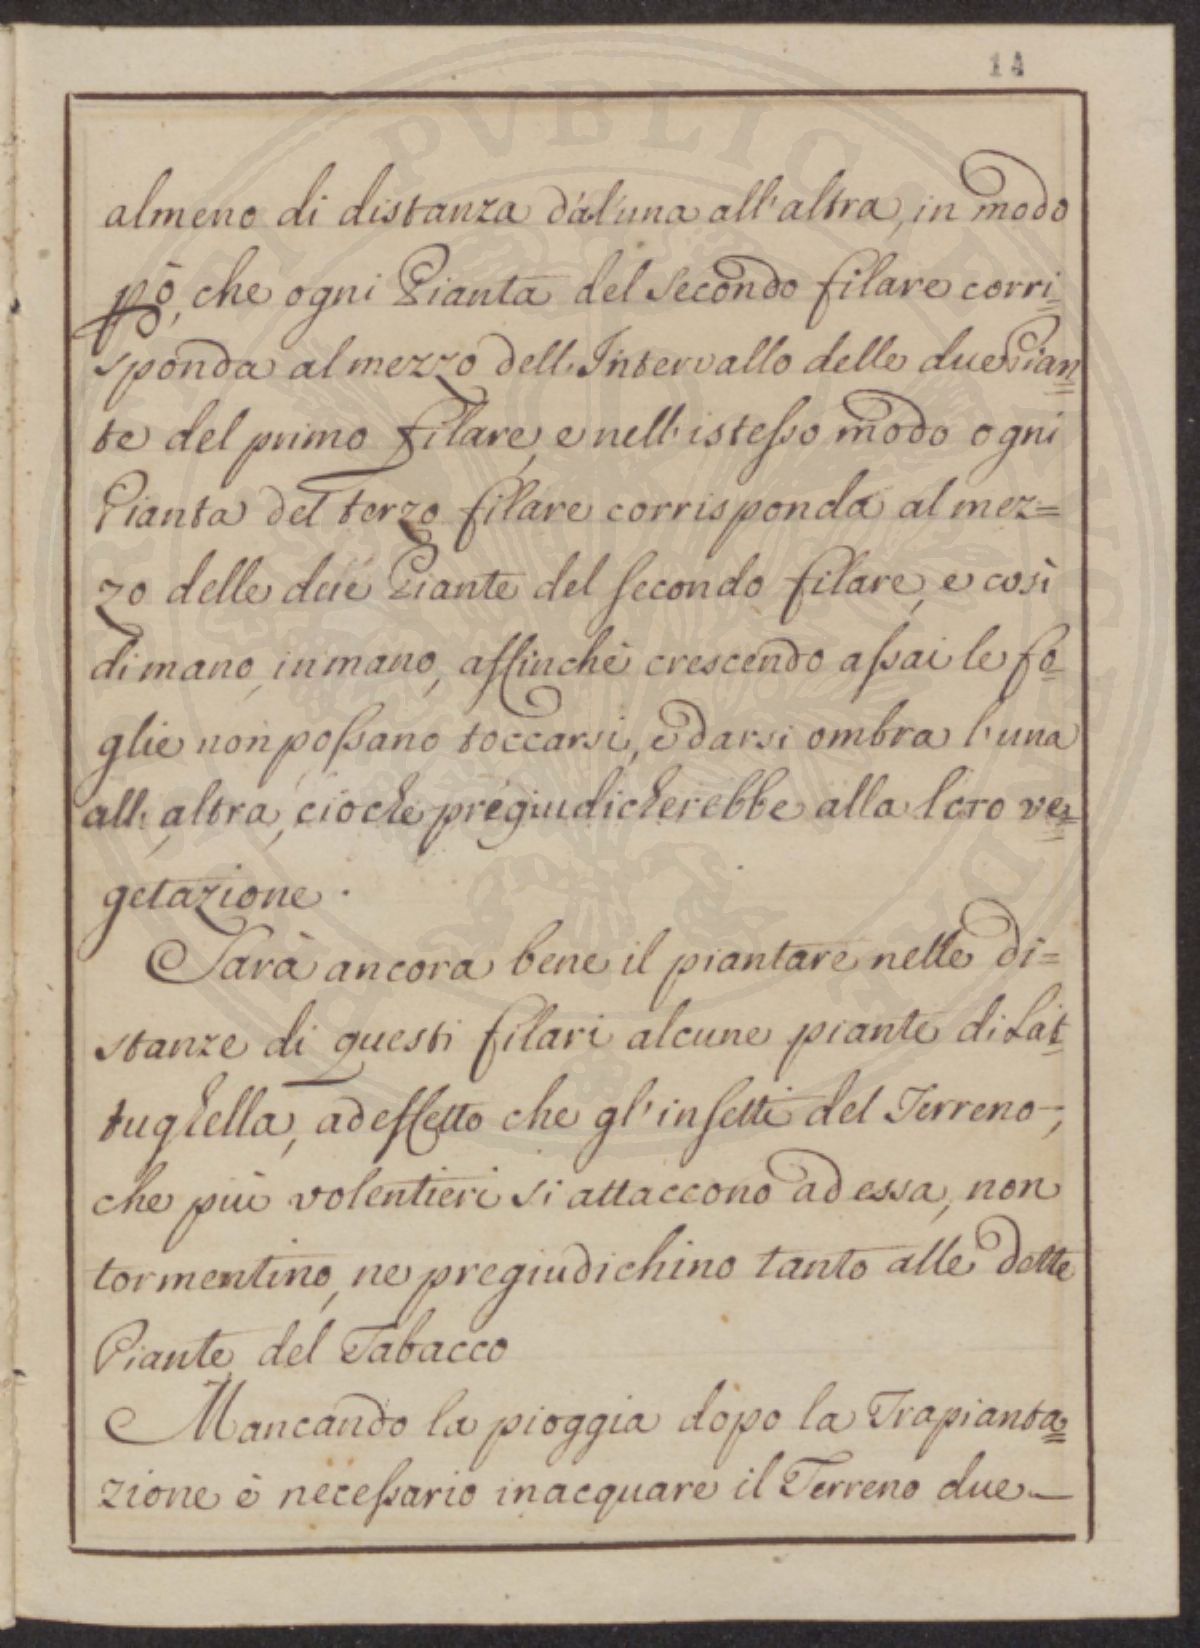 14
almeno di distanza dal'una all'altra, in modo
pò, che ogni Pianta del secondo filare corri=
sponda al mezzo dell'Intervallo delle due Pian=
te del primo filare, e nell'istesso modo ogni
Pianta del terzo filare corrisponda al mez=
zo delle due Piante del secondo filare, e così
di mano, in mano, affinchè crescendo assai le fo=
glie non possano toccarsi, e darsi ombra l'una
all'altra, cioche pregiudicherebbe alla loro ve=
getazione.
Sarà ancora bene il piantare nelle di=
stanze di questi filari alcune piante di Lat=
tughella, ad effetto che gl'insetti del Terreno,
che più volentieri si attaccono ad essa, non
tormentino, ne pregiudichino tanto alle dette
Piante del Tabacco
Mancando la pioggia dopo la Trapianta=
zione è necessario inacquare il Terreno due